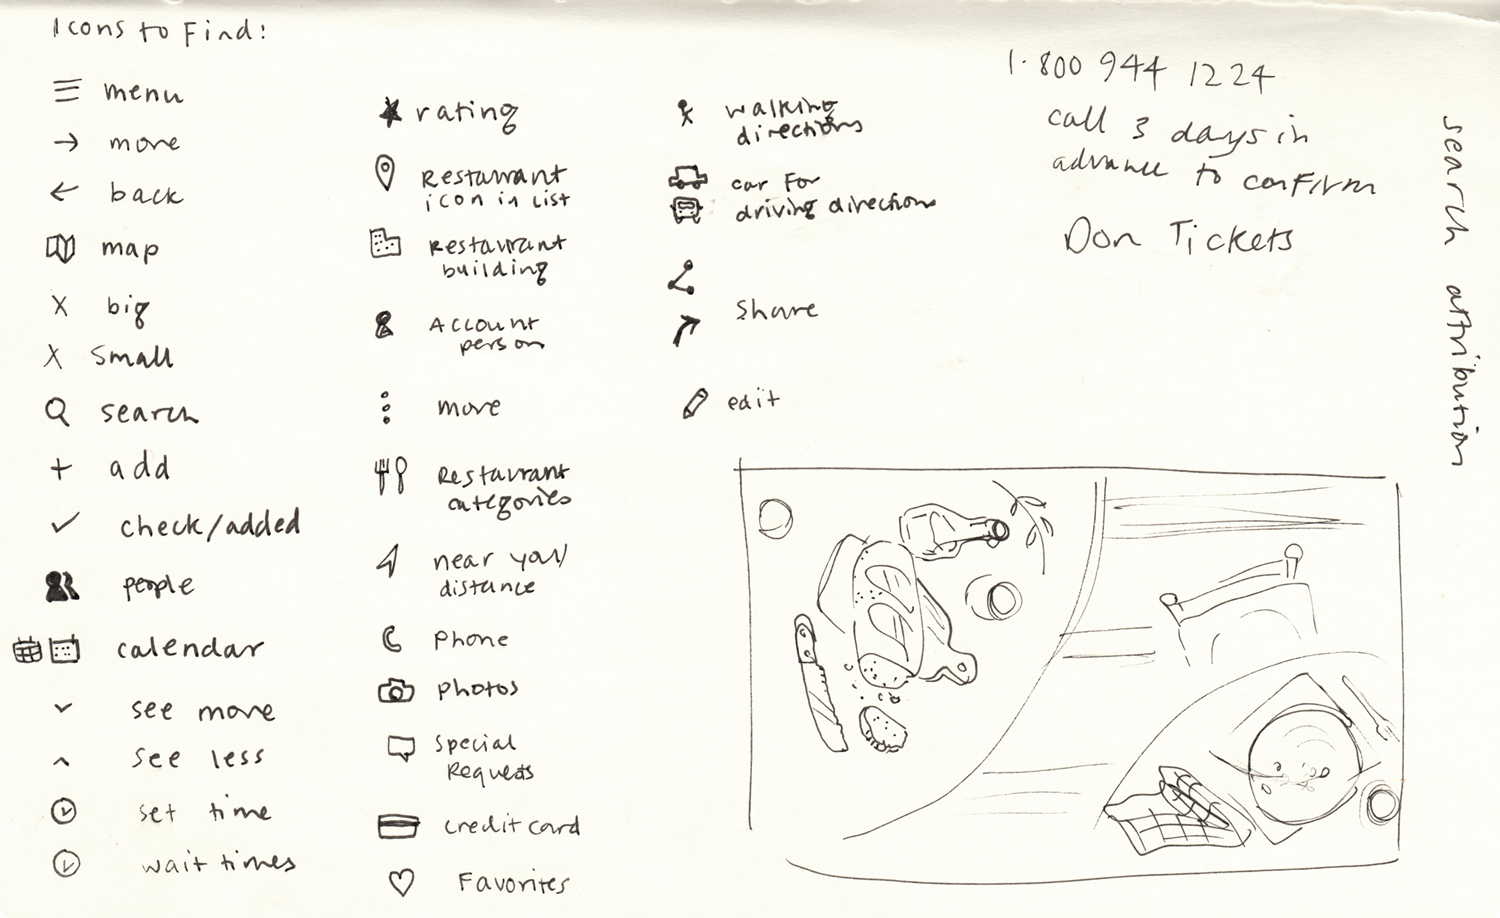 Icons to Find:
menu
more
back
map
X big
X small
search
add
check/added
people
calendar
see more
see less
set time
wait times
rating
Restaurant
icon in list
Restaurant
building
Account
person
more
Restaurant
categories
near you/
distance
Phone
photos
Special
Requests
credit card
Favorites
walking
directions
car for
driving directions
share
edit
1·800 944 1224
call 3 days in
advance to confirm
Don Tickets
search attribution